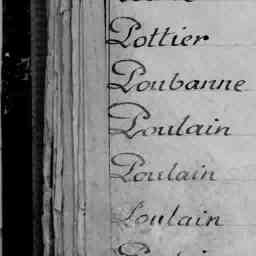 Pottier
Poubanne
Poulain
Poulain
Poulain